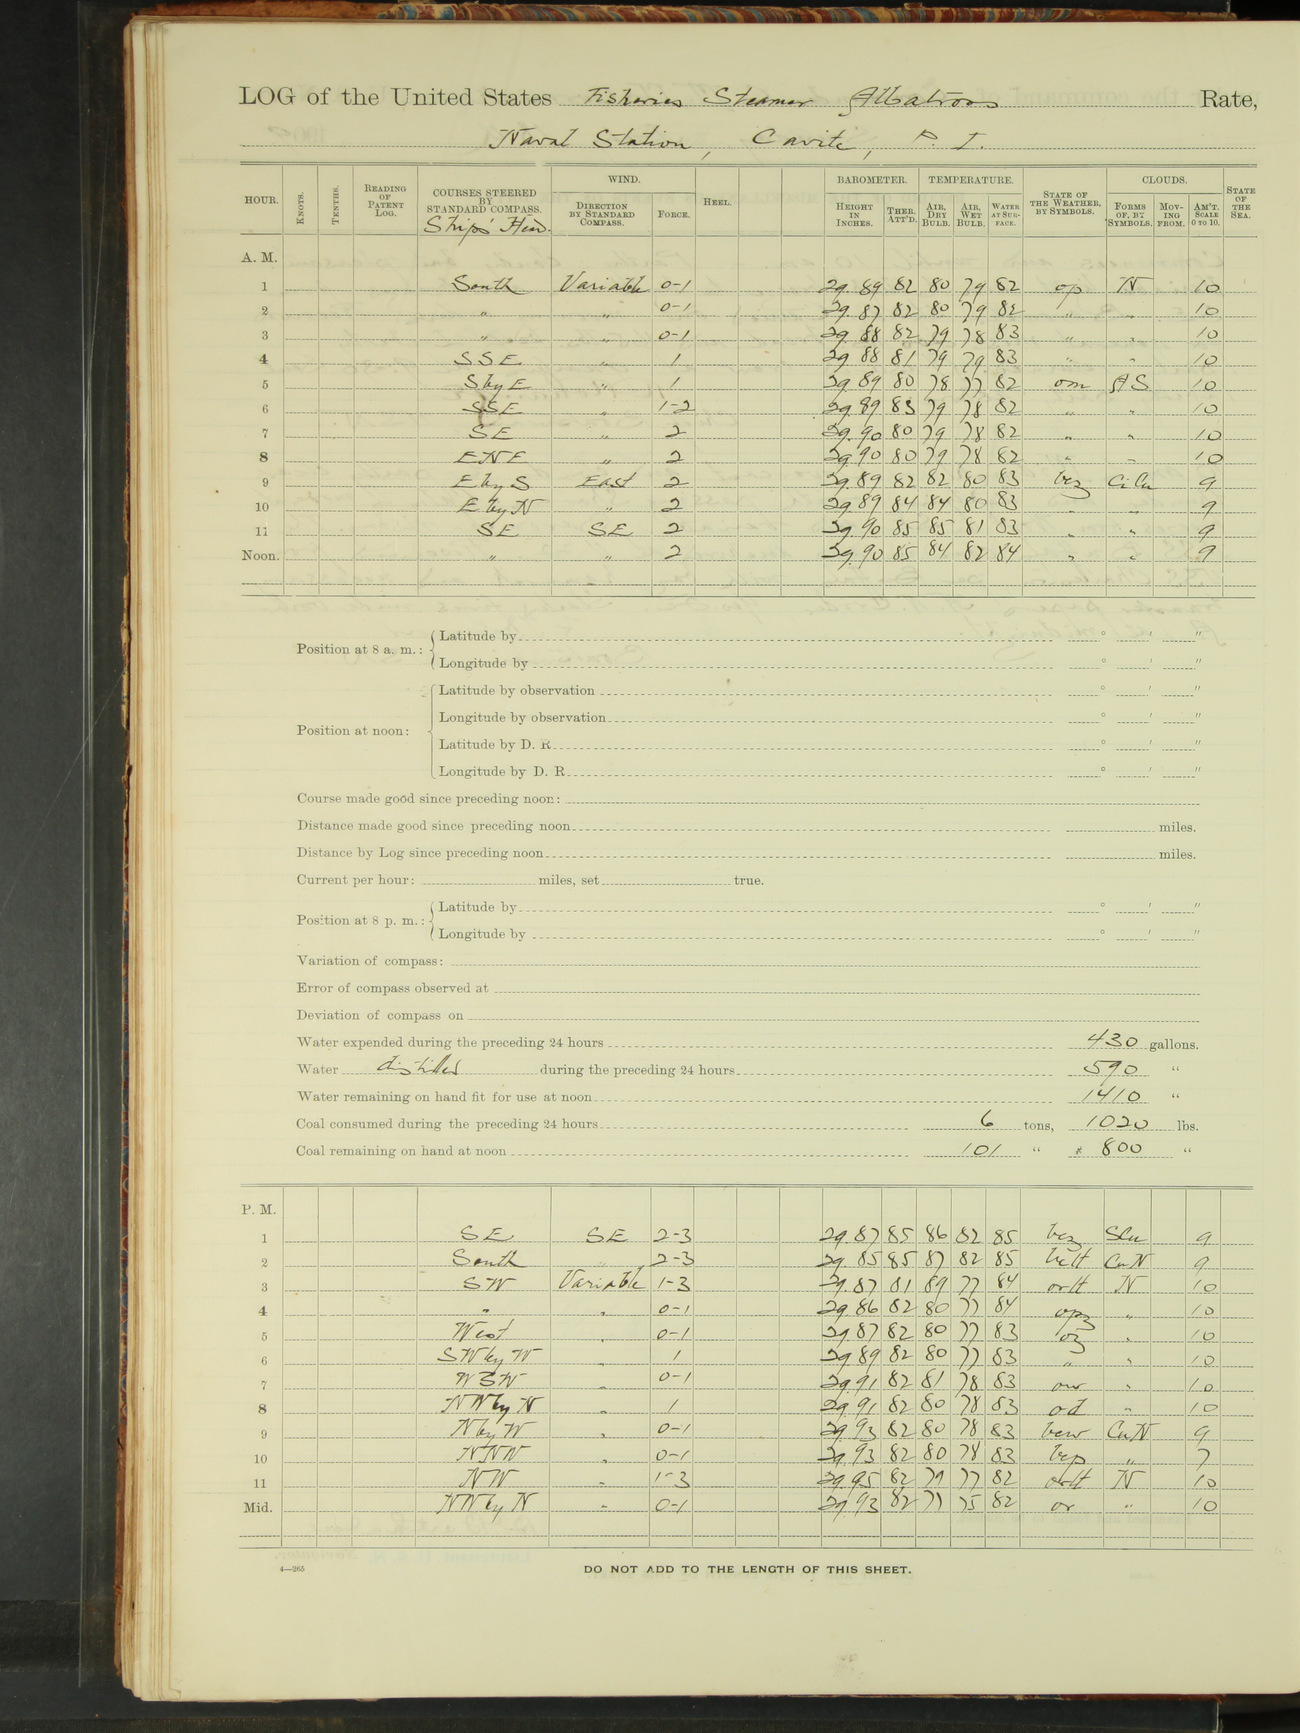 LOG of the United States Fisheries Steamer Albatross Rate,
Naval Station, Cavite, P. I.
HOUR. KNOTS. TENTHS. READING OF PATENT LOG. COURSES STEERED BY STANDARD COMPASS. WIND. DIRECTION BY STANDARD COMPASS. FORCE. HEEL. BAROMETER. HEIGHT IN INCHES. THER. ATT'D. TEMPERATURE. AIR, DRY BULB. AIR, WET BULB. WATER AT SURFACE. STATE OF THE WEATHER, BY SYMBOLS. CLOUDS. FORMS OF, BY SYMBOLS. MOVING FROM. AM'T. SCALE 0 TO 10. STATE OF THE SEA.
Ships' Head
A. M.
1 South Variable 0-1 29.89 82 80 79 82 op N 10
2 " " 0-1 29.87 82 80 79 82 " " 10
3 " " 0-1 29.88 82 79 78 83 " " 10
4 SSE " 1 29.88 81 79 79 83 " " 10
5 S by E " 1 29.89 80 78 77 82 om AS 10
6 SSE " 1-2 29.89 83 79 78 82 " " 10
7 SE " 2 29.90 80 79 78 82 " " 10
8 ENE " 2 29.90 80 79 78 82 " " 10
9 E by S East 2 29.89 82 82 80 83 bcz CiCu 9
10 E by N " 2 29.89 84 84 80 83 " " 9
11 SE SE 2 29.90 85 85 81 83 " " 9
Noon. " " 2 29.90 85 84 82 84 " " 9
Position at 8 a. m.: Latitude by ° ' "
Longitude by ° ' "
Position at noon: Latitude by observation ° ' "
Longitude by observation ° ' "
Latitude by D. R. ° ' "
Longitude by D. R. ° ' "
Course made good since preceding noon:
Distance made good since preceding noon miles.
Distance by Log since preceding noon miles.
Current per hour: miles, set true.
Position at 8 p. m.: Latitude by ° ' "
Longitude by ° ' "
Variation of compass:
Error of compass observed at
Deviation of compass on
Water expended during the preceding 24 hours 430 gallons.
Water distilled during the preceding 24 hours 590 "
Water remaining on hand fit for use at noon 1410 "
Coal consumed during the preceding 24 hours 6 tons, 1020 lbs.
Coal remaining on hand at noon 101 " 800 "
P. M.
1 SE SE 2-3 29.87 85 86 82 85 bcz SCu 9
2 South " 2-3 29.85 85 87 82 85 bctt CuN 9
3 SW Variable 1-3 29.87 81 89 77 84 ortt N 10
4 " " 0-1 29.86 82 80 77 84 opz " 10
5 West " 0-1 29.87 82 80 77 83 oz " 10
6 SW by W " 1 29.89 82 80 77 83 " " 10
7 WSW " 0-1 29.91 82 81 78 83 ow " 10
8 NW by N " 1 29.91 82 80 78 83 od " 10
9 N by W " 0-1 29.93 82 80 78 83 bcw CuN 9
10 NNW " 0-1 29.93 82 80 78 83 bcp " 7
11 NW " 1-3 29.95 82 79 77 82 ortt N 10
Mid. NW by N " 0-1 29.93 82 77 75 82 or " 10
4—265
DO NOT ADD TO THE LENGTH OF THIS SHEET.